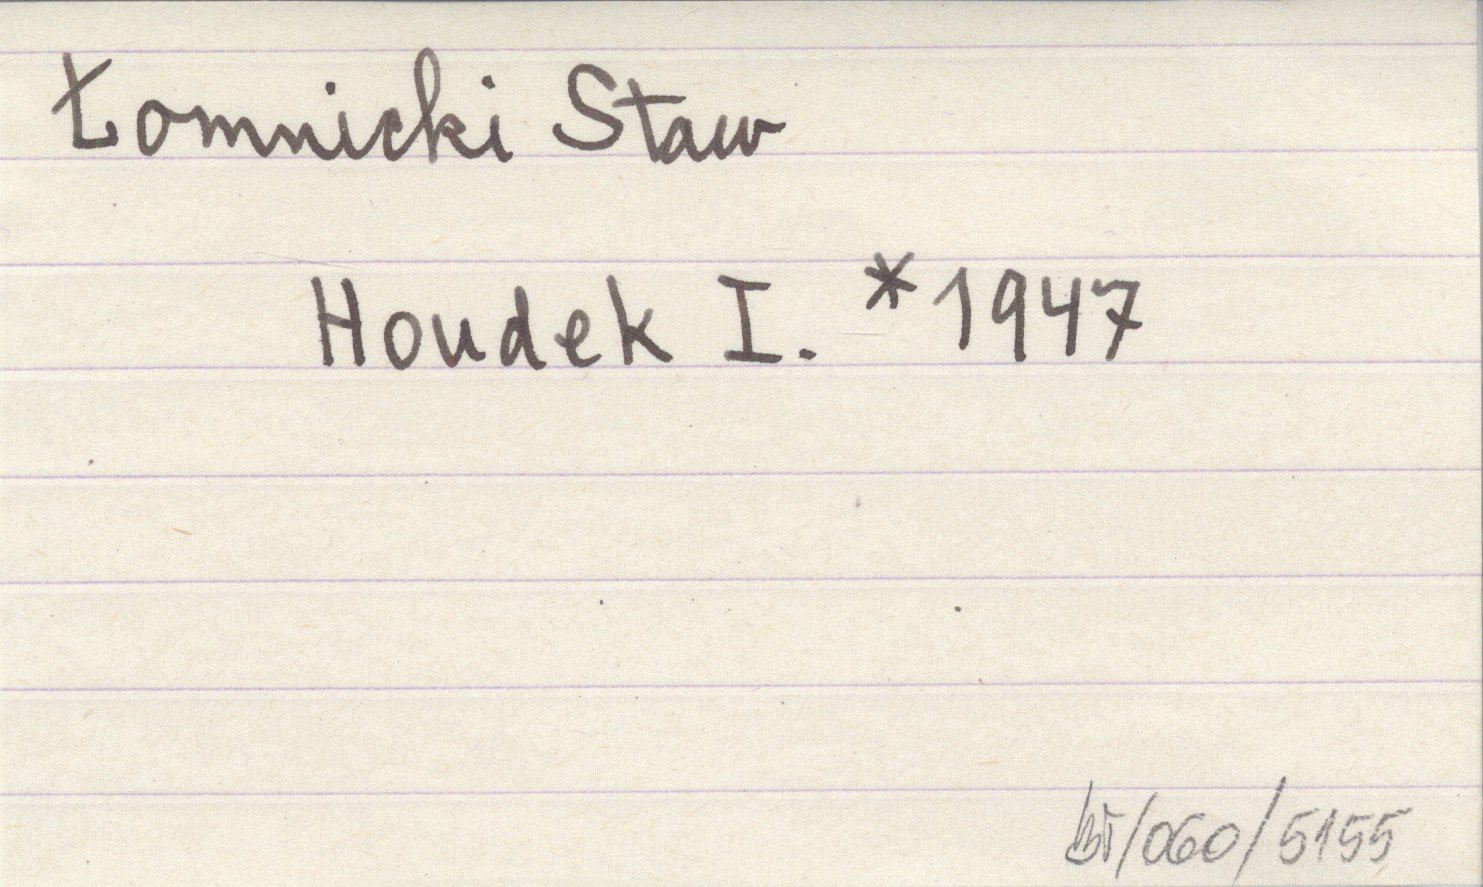 Łomnicki Staw
Houdek I. *1947
/060/5155